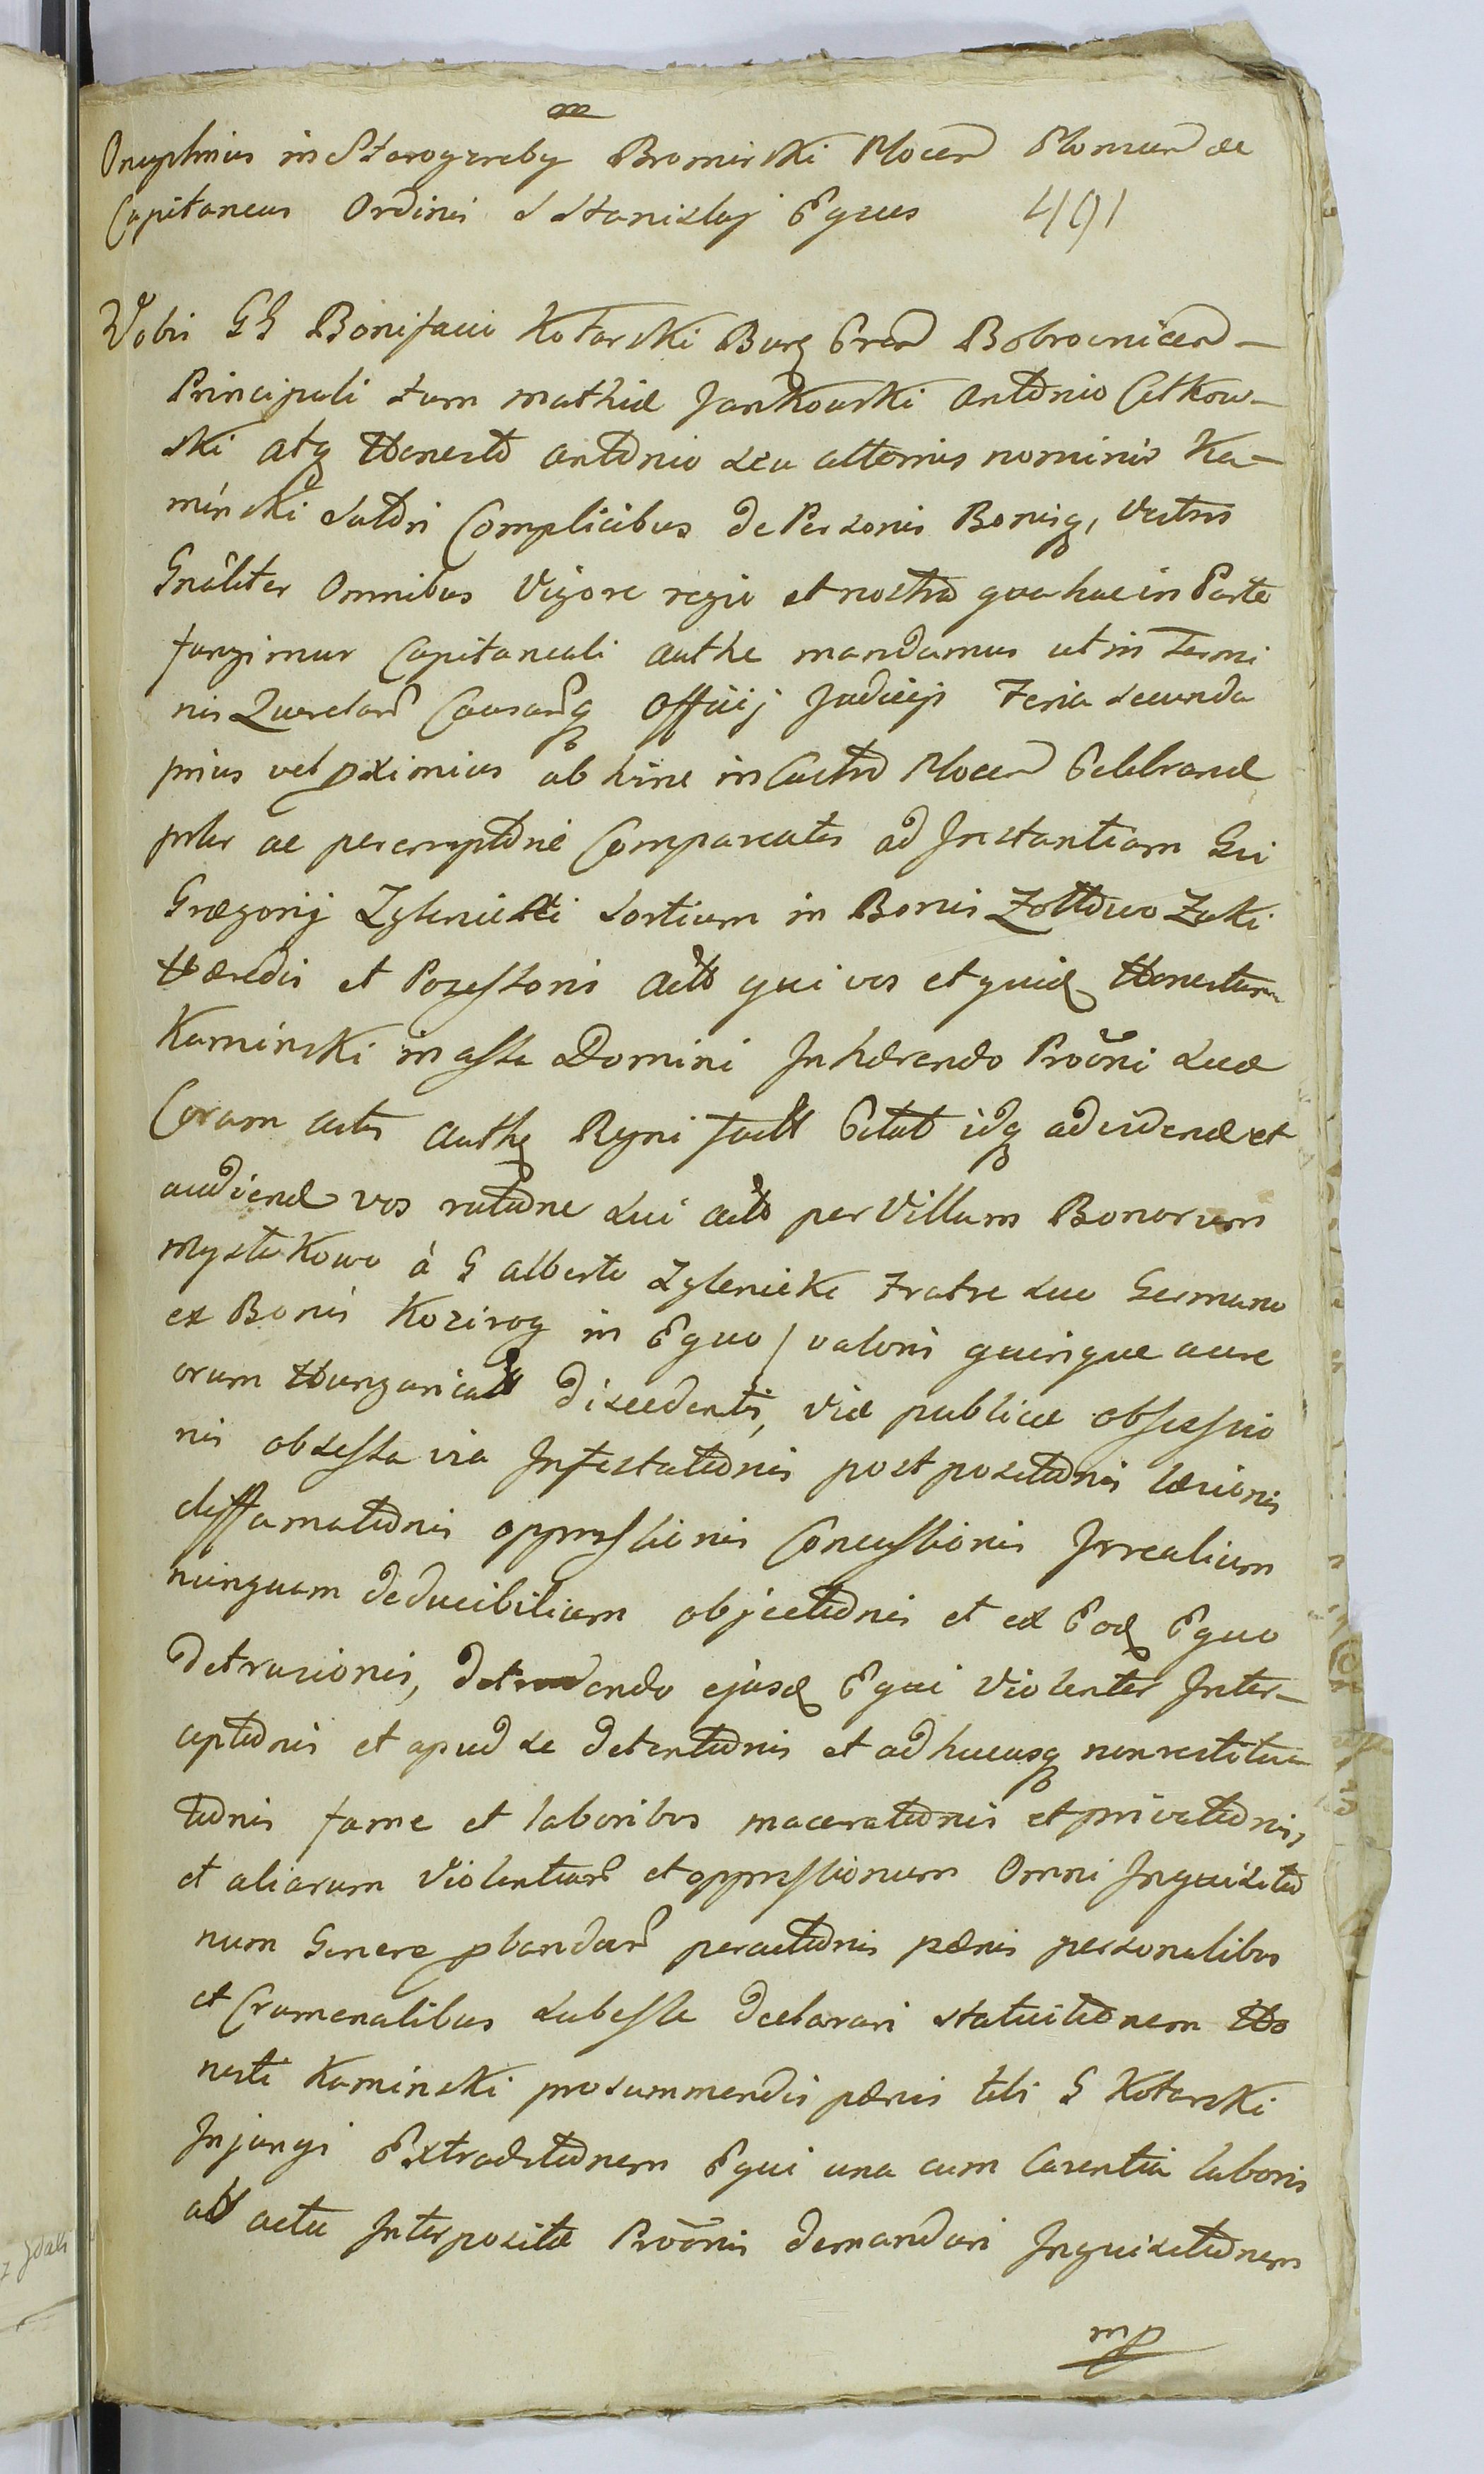 m
Onuphrius in Starogzreby Bromirski Plocen Plonscen &c
Capitaneus Ordinis S Stanislaj Eques 491
Vobis GG Bonifacio Kotarski Burg Cren Bobrownicen -
Principali tum Mathiæ Jankowski Antonio Cetkow-
ski atq Honesto Antonio seu alterius nominis Ka-
minski Satori Complicibus de Personis Bonisq, vestris
Gnâliter Omnibus Vigore regia et nostra qua hac in Parte
fungimur Capitaneali Authe mandamus ut in Termi
nis Querelarr Causarrq Officij Judicijs Feria Secunda
prius vel pximius ab hinc in Castro Plocen Celebrand
plr ac peremptorie Compareatis ad Instantiam Gsi
Gregorij Zglenicki Sortium in Bonis Zottowo Zuki
Hæredis et Possessoris Actts qui vos et quid Honestum
Kaminski in assa Domini Inhærendo Proôni suæ
Coram actis Authq Regni factt Citat idq ad videnđ et
audienđ vos ratione sui Actts per Villam Bonorum
Mystkowo à G Alberto Zglenicki Fratre suo Germano
ex Bonis Kozirog in Equo / valoris quinque aure
orum Hungaricall discedentis, viæ publicæ obsessio
nis obsessa via Infestationis postpositionis læsionis
diffamationis oppressionis Concussionis Irrealium
nunquam deducibilium objectionis et ex Eod Equo
detrusionis, detrudendo ejusđ Equi violenter Inter-
ceptionis et apud se detentionis et ad hucusq non restitu
tionis fame et laboribus macerationis et privationis,
et aliarum violentiarr et oppressionum Omni Inquisitio
num Genere pbandarr peractionis pænis personalibus
et Crumenalibus subesse declarari statuitionem Ho
nesti Kaminski pro summendis pænis tibi G Kotarski
Injungi Extraditionem Equi una cum Carentia laboris
all actu Interpositæ Proônis demandari Inquisitionem
mp